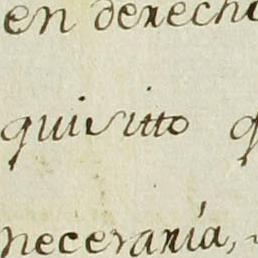 en derech
quisitto q
neceraria,